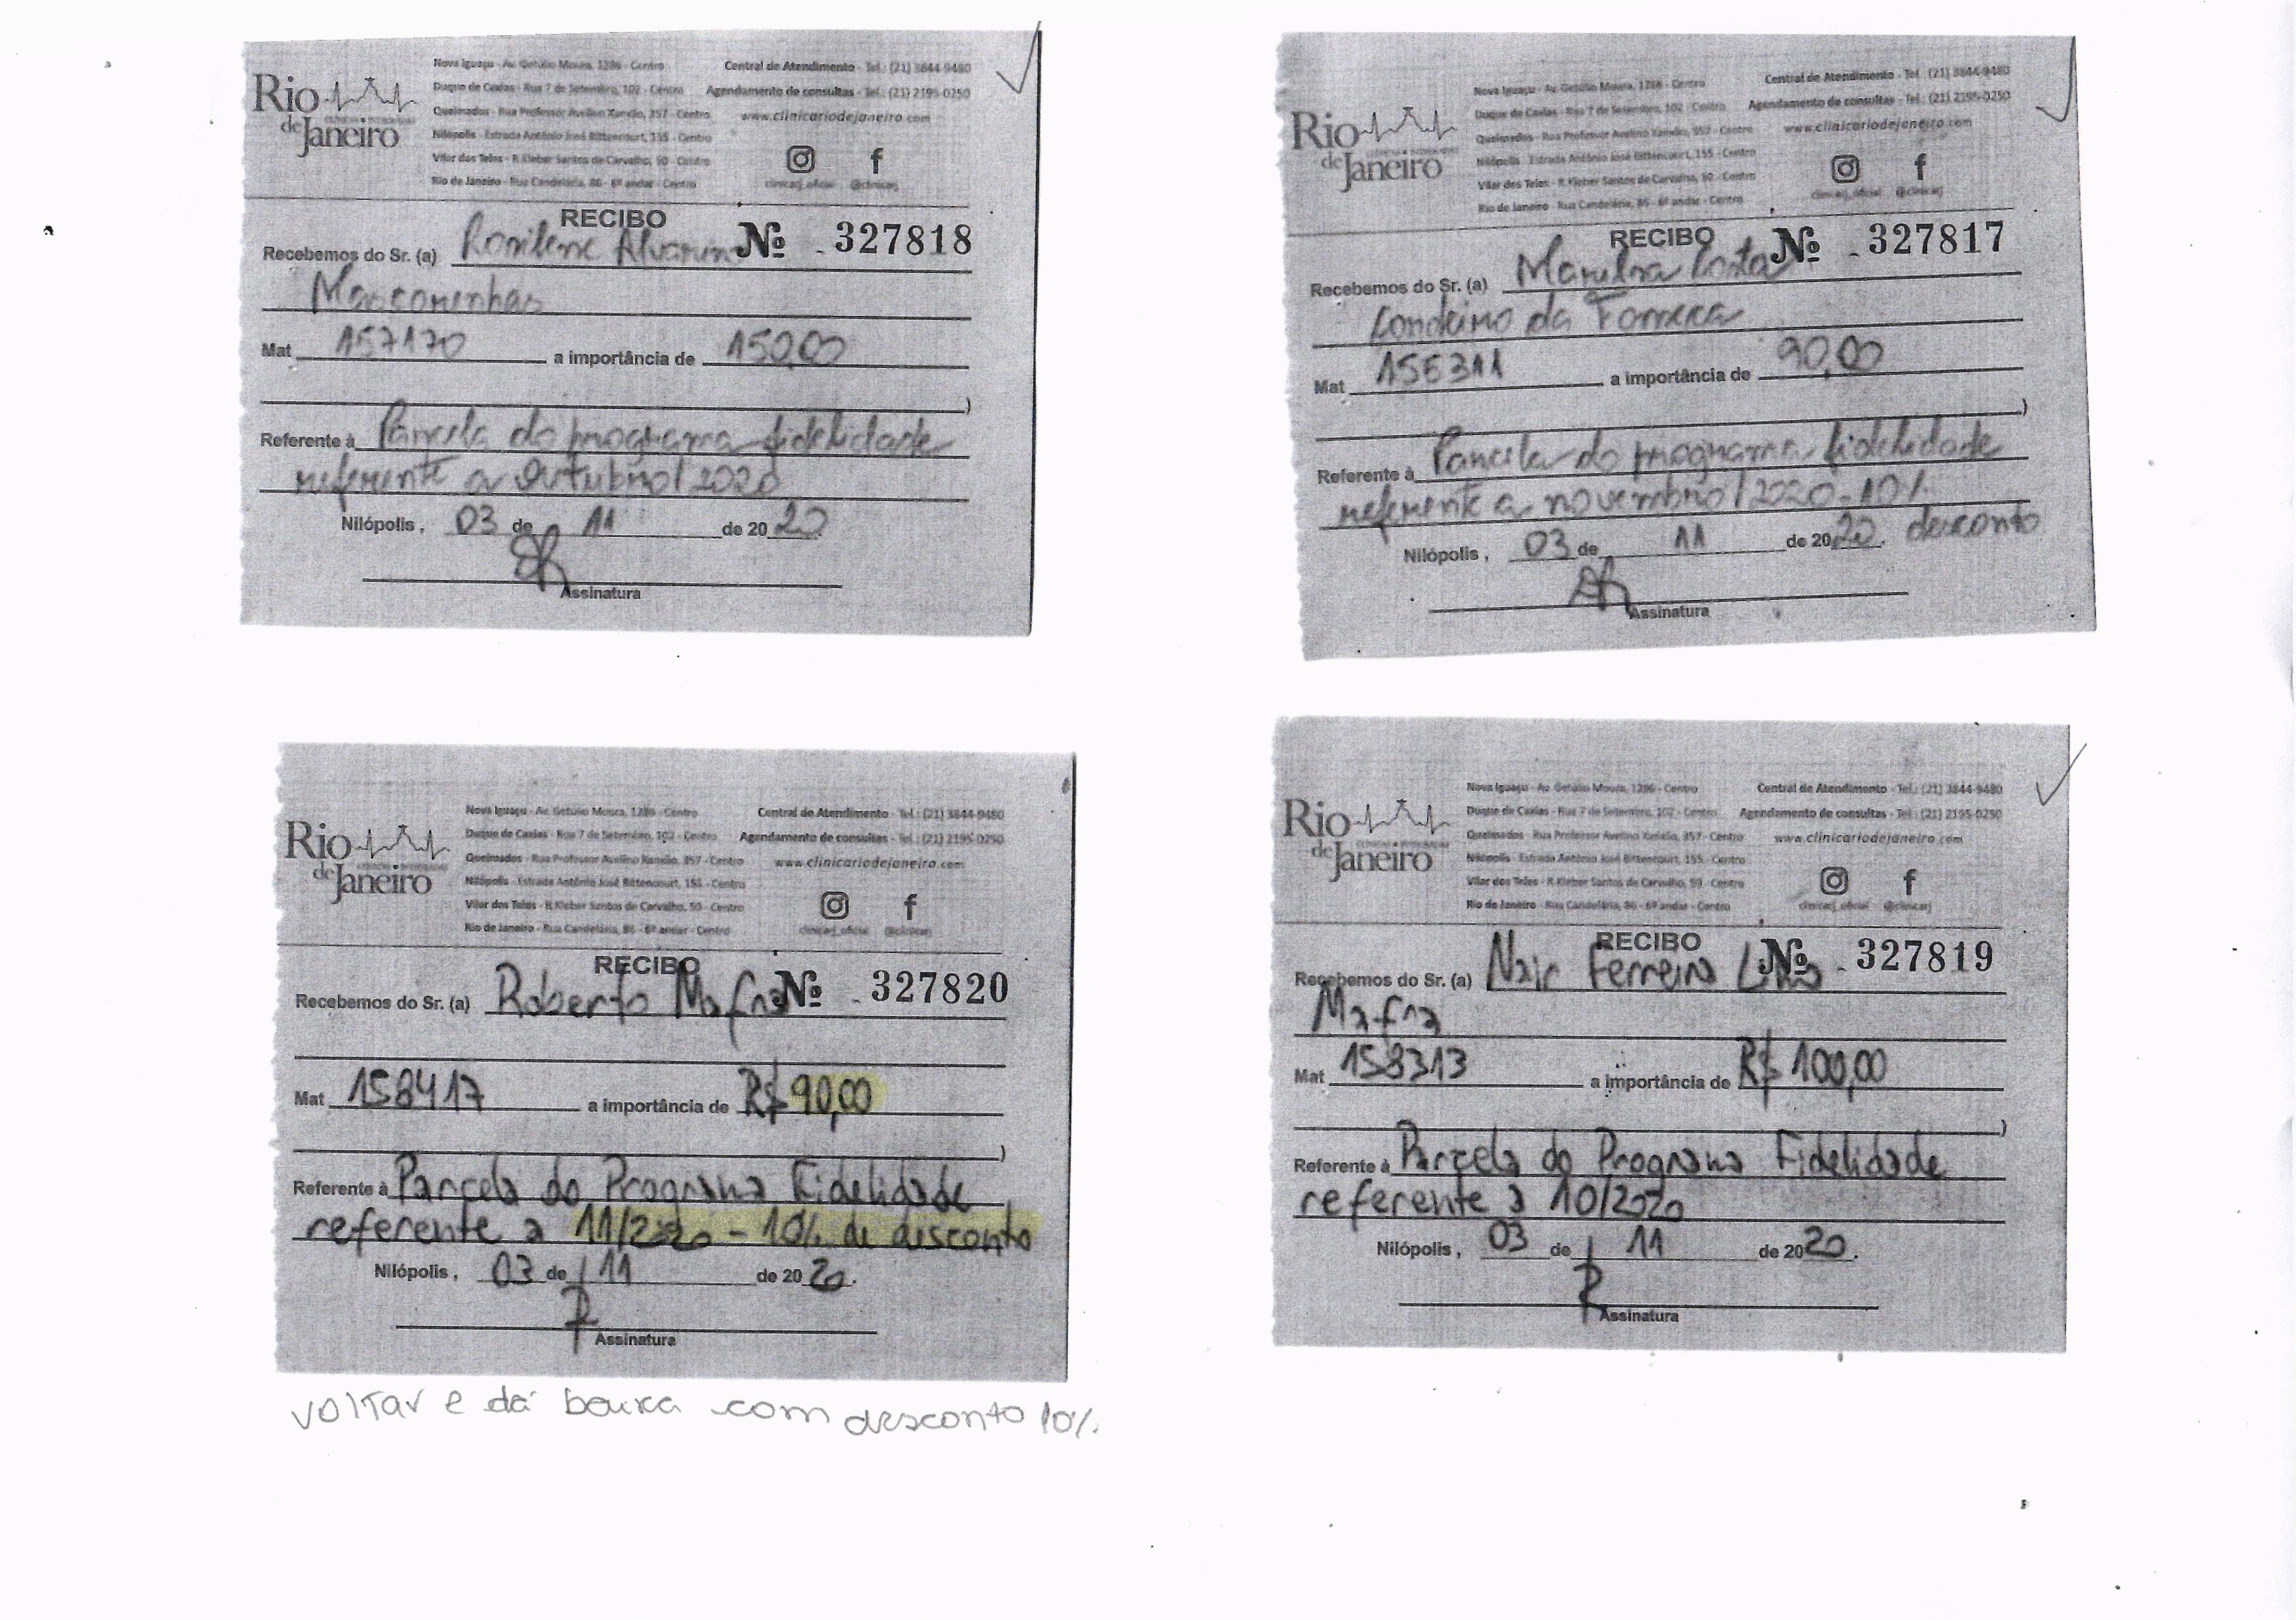 Rio
de Janeiro
Nova Iguaçu - Av. Getúlio Moura, 1286 - Centro
Duque de Caxias - Rua 7 de Setembro, 102 - Centro
Queimados - Rua Professor Avelino Xanxão, 357 - Centro
Nilópolis - Estrada Antônio José Bittencourt, 155 - Centro
Vilar dos Teles - R Kleber Santos de Carvalho, 50 - Centro
Rio de Janeiro - Rua Candelária, 86 - 6º andar - Centro
Central de Atendimento - Tel.: (21) 3844-9480
Agendamento de consultas - Tel.: (21) 2195-0250
www.clinicariodejaneiro.com
clinicarj_oficial @clinicarj
RECIBO
Nº 327818
Recebemos do Sr. (a) Rosilene
Mascarenhas
Mat 157170 a importância de 150,00
)
Referente à Parcela do programa fidelidade
referente a Outubro/2020
Nilópolis, 03 de 11 de 2020
Assinatura
Rio
de Janeiro
Nova Iguaçu - Av. Getúlio Moura, 1286 - Centro
Duque de Caxias - Rua 7 de Setembro, 102 - Centro
Queimados - Rua Professor Avelino Xanxão, 357 - Centro
Nilópolis - Estrada Antônio José Bittencourt, 155 - Centro
Vilar dos Teles - R Kleber Santos de Carvalho, 50 - Centro
Rio de Janeiro - Rua Candelária, 86 - 6º andar - Centro
Central de Atendimento - Tel.: (21) 3844-9480
Agendamento de consultas - Tel.: (21) 2195-0250
www.clinicariodejaneiro.com
clinicarj_oficial @clinicarj
RECIBO
Nº 327817
Recebemos do Sr. (a) Costa
da Fonseca
Mat 155311 a importância de 90,00
)
Referente à Parcela do programa fidelidade
referente a novembro/2020-10%
desconto
Nilópolis, 03 de 11 de 2020.
Assinatura
Rio
de Janeiro
Nova Iguaçu - Av. Getúlio Moura, 1286 - Centro
Duque de Caxias - Rua 7 de Setembro, 102 - Centro
Queimados - Rua Professor Avelino Xanxão, 357 - Centro
Nilópolis - Estrada Antônio José Bittencourt, 155 - Centro
Vilar dos Teles - R Kleber Santos de Carvalho, 50 - Centro
Rio de Janeiro - Rua Candelária, 86 - 6º andar - Centro
Central de Atendimento - Tel.: (21) 3844-9480
Agendamento de consultas - Tel.: (21) 2195-0250
www.clinicariodejaneiro.com
clinicarj_oficial @clinicarj
RECIBO
Nº 327820
Recebemos do Sr. (a) Roberto Mafra
Mat 158417 a importância de R$ 90,00
)
Referente à Parcela do Programa Fidelidade
referente a 11/2020 - 10% de disconto
Nilópolis, 03 de 11 de 2020.
Assinatura
voltar e dá bauxa com desconto 10%
Rio
de Janeiro
Nova Iguaçu - Av. Getúlio Moura, 1286 - Centro
Duque de Caxias - Rua 7 de Setembro, 102 - Centro
Queimados - Rua Professor Avelino Xanxão, 357 - Centro
Nilópolis - Estrada Antônio José Bittencourt, 155 - Centro
Vilar dos Teles - R Kleber Santos de Carvalho, 50 - Centro
Rio de Janeiro - Rua Candelária, 86 - 6º andar - Centro
Central de Atendimento - Tel.: (21) 3844-9480
Agendamento de consultas - Tel.: (21) 2195-0250
www.clinicariodejaneiro.com
clinicarj_oficial @clinicarj
RECIBO
Nº 327819
Recebemos do Sr. (a) Nair Ferreira Lima
Mafra
Mat 158313 a importância de R$ 100,00
)
Referente à Parcela do Programa Fidelidade
referente a 10/2020
Nilópolis, 03 de 11 de 2020.
Assinatura